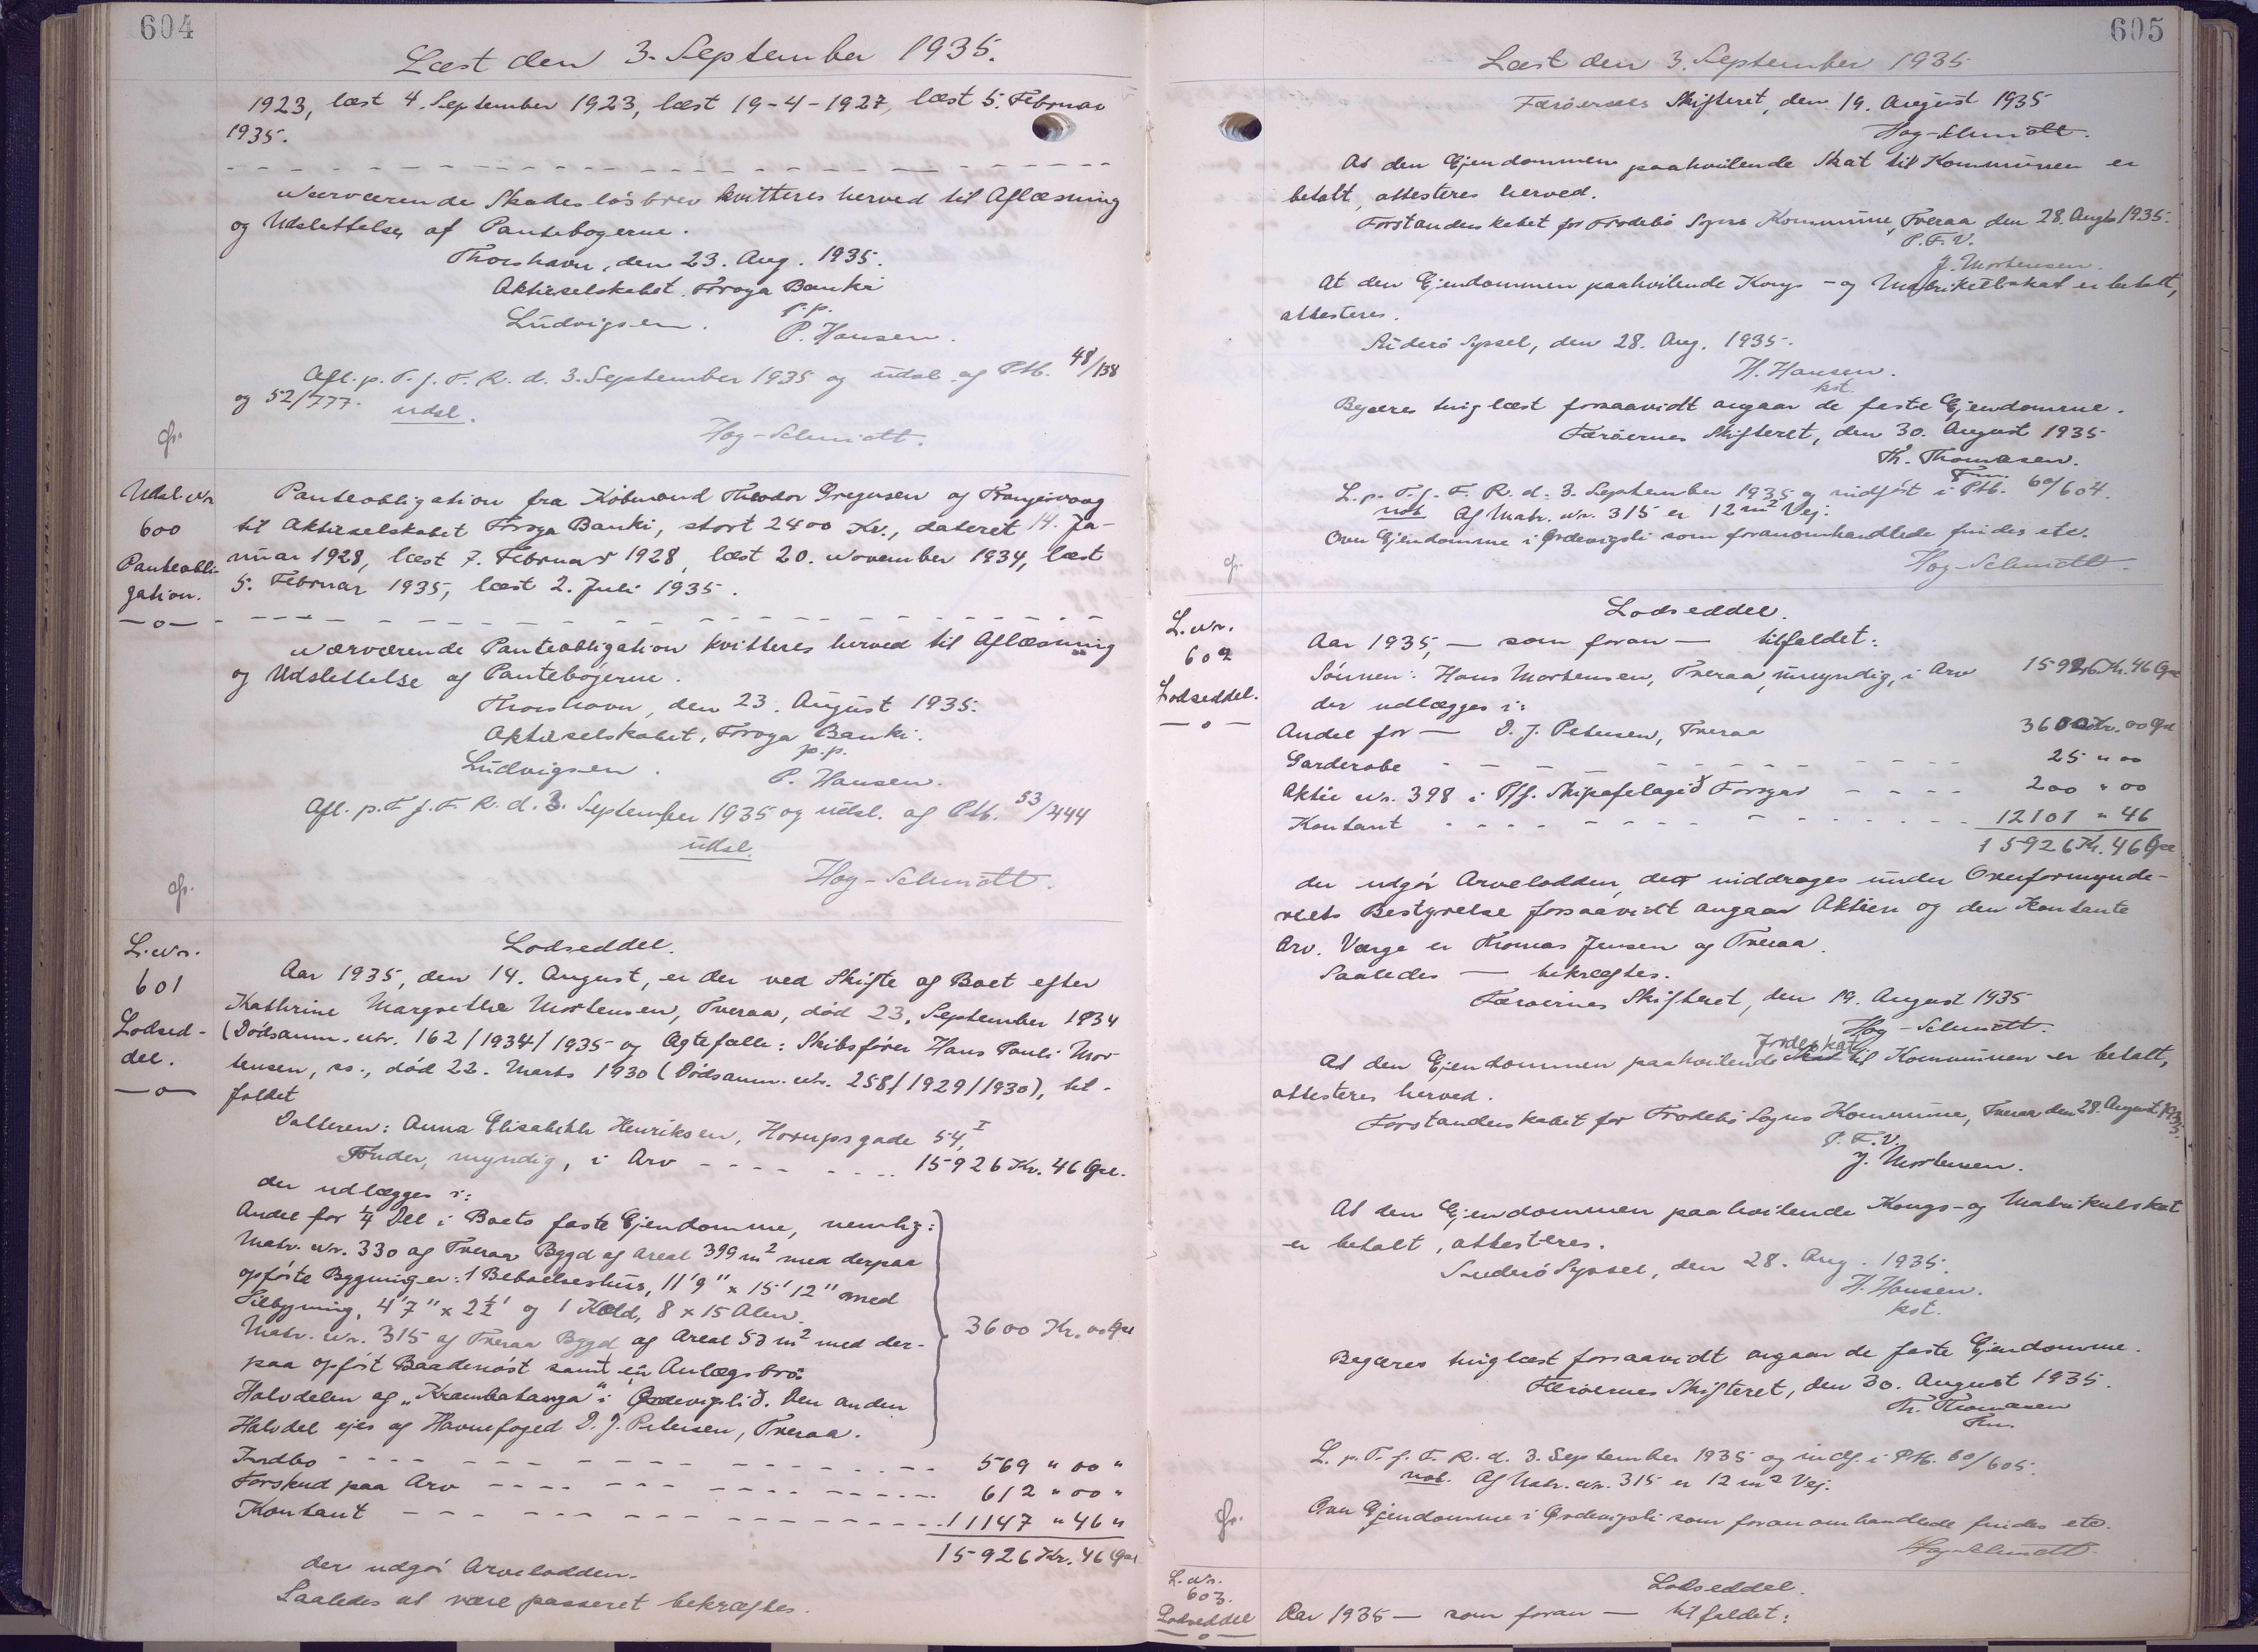 604
Læst den 3. September 1935.
1923, læst 4. September 1923, læst 19-4-1927, læst 5. Februar
1935.
Nærværende Skadesløsbrev kvitteres herved til Aflæsning
og Udslettelse af Pantebogerne.
Thorshavn, den 23. Aug. 1935.
Aktieselskabet Føroya Banki
p.p.
Ludvigsen. P. Hansen.
Afl. p. T. f. F. R. d. 3. September 1935 og udsl. af Ptb. 48/138
og 52/777. udsl.
Høg-Schmidt.
Udsl. Nr.
600
Panteobli-
gation.
Panteobligation fra Købmand Theodor Gregersen af Trangisvaag
til Aktieselskabet Føroya Banki, stort 2400 Kr., dateret 14. Ja-
nuar 1928, læst 7. Februar 1928, læst 20. November 1934, læst
5. Februar 1935, læst 2. Juli 1935.
Nærværende Panteobligation kvitteres herved til Aflæsning
og Udslettelse af Pantebøgerne.
Thorshavn, den 23. August 1935.
Aktieselskabet, Føroya Banki.
p.p.
Ludvigsen. P. Hansen.
Afl. p. T. f. F. R. d. 3. September 1935 og udsl. af Ptb. 53/444
udsl.
Høg-Schmidt.
L. Nr.
601
Lodsed-
del.
Lodseddel.
Aar 1935, den 14. August, er der ved Skifte af Boet efter
Kathrine Margrethe Mortensen, Tveraa, død 23. September 1934
(Dødsanm. Nr. 162/1934/1935 og Ægtefælle: Skibsfører Hans Pauli Mor-
tensen, ss., død 22. Marts 1930 (Dødsanm. Nr. 258/1929/1930), til-
faldet
Datteren: Anna Elisabeth Henriksen, Horupsgade 54, I
Tønder, myndig, i Arv 15926 Kr. 46 Øre.
der udlægges i:
Andel for 1/4 Del i Boets faste Ejendomme, nemlig:
Matr. Nr. 330 af Tveraa Bygd af Areal 399 m2 med derpaa
opførte Bygninger: 1 Beboelseshus, 11'9" x 15'12" med
Tilbygning, 4'7" x 2 1/2' og 1 Kæld, 8 x 15 Alen.
Matr. Nr. 315 af Tveraa Bygd af Areal 53 m2 med der-
paa opført Baadenøst samt en Anlægsbro.
3600 Kr. 00 Øre
Halvdelen af "Krambatanga" i Ørdeviglið. Den anden
Halvdel ejes af Havnefoged D. J. Petersen, Tveraa.
Indbo 569 " 00 "
Forskud paa Arv 612 " 00 "
Kontant 11147 " 46 "
15926 Kr. 46 Øre
der udgør Arvelodden.
Saaledes at være passeret bekræftes.
605
Læst den 3. September 1935
Færøernes Skifteret, den 19. August 1935
Høg-Schmidt.
At den Ejendommen paahvilende Skat til Kommunen er
betalt, attesteres herved.
Forstanderskabet for Frodebø Sogns Kommune, Tveraa den 28. Augts 1935.
P. F. V.
J. Mortensen.
At den Ejendommen paahvilende Kongs- og Matrikelskat er betalt,
attesteres.
Suderø Syssel, den 28. Aug. 1935.
H. Hansen.
kst.
Begæres tinglæst forsaavidt angaar de faste Ejendomme.
Færøernes Skifteret, den 30. August 1935
Th. Thomasen.
Fm.
L. p. T. f. F. R. d. 3. September 1935 og indført i Ptb. 60/604.
not. Af Matr. Nr. 315 er 12 m2 Vej.
Over Ejendomme i Ørdevigsli som foranomhandlede findes etc.
Høg-Schmidt.
L. Nr.
602
Lodseddel.
Lodseddel.
Aar 1935, — som foran — tilfaldet:
Sønnen: Hans Mortensen, Tveraa, umyndig, i Arv 15926 Kr. 46 Øre
der udlægges i:
Andel for — D. J. Petersen, Tveraa 3600 Kr. 00 Øre
Garderobe 25 " 00
Aktie Nr. 398 i P/f. Skipafelagið Føroyar 200 " 00
Kontant 12101 " 46
15926 Kr. 46 Øre
der udgør Arvelodden, der inddrages under Overformynde-
riets Bestyrelse forsaavidt angaar Aktien og den Kontante
Arv. Værge er Thomas Jensen af Tveraa.
Saaledes — bekræftes.
Færøernes Skifteret, den 19. August 1935
Høg-Schmidt.
At den Ejendommen paahvilende Jordeskat til Kommunen er betalt,
attesteres herved.
Forstanderskabet for Frodebø Sogns Kommune, Tveraa den 28. August 1935.
P. F. V.
J. Mortensen.
At den Ejendommen paahvilende Kongs- og Matrikulskat
er betalt, attesteres.
Suderø Syssel, den 28. Aug. 1935.
H. Hansen.
kst.
Begæres tinglæst forsaavidt angaar de faste Ejendomme.
Færøernes Skifteret, den 30. August 1935.
Th. Thomasen
Fm.
L. p. T. f. F. R. d. 3. September 1935 og indf. i Ptb. 60/605.
not. Af Matr. Nr. 315 er 12 m2 Vej.
Over Ejendomme i Ørdevigsli som foranomhandlede findes etc.
Høg-Schmidt.
L. Nr.
603.
Lodseddel
Lodseddel.
Aar 1935 — som foran — tilfaldet: